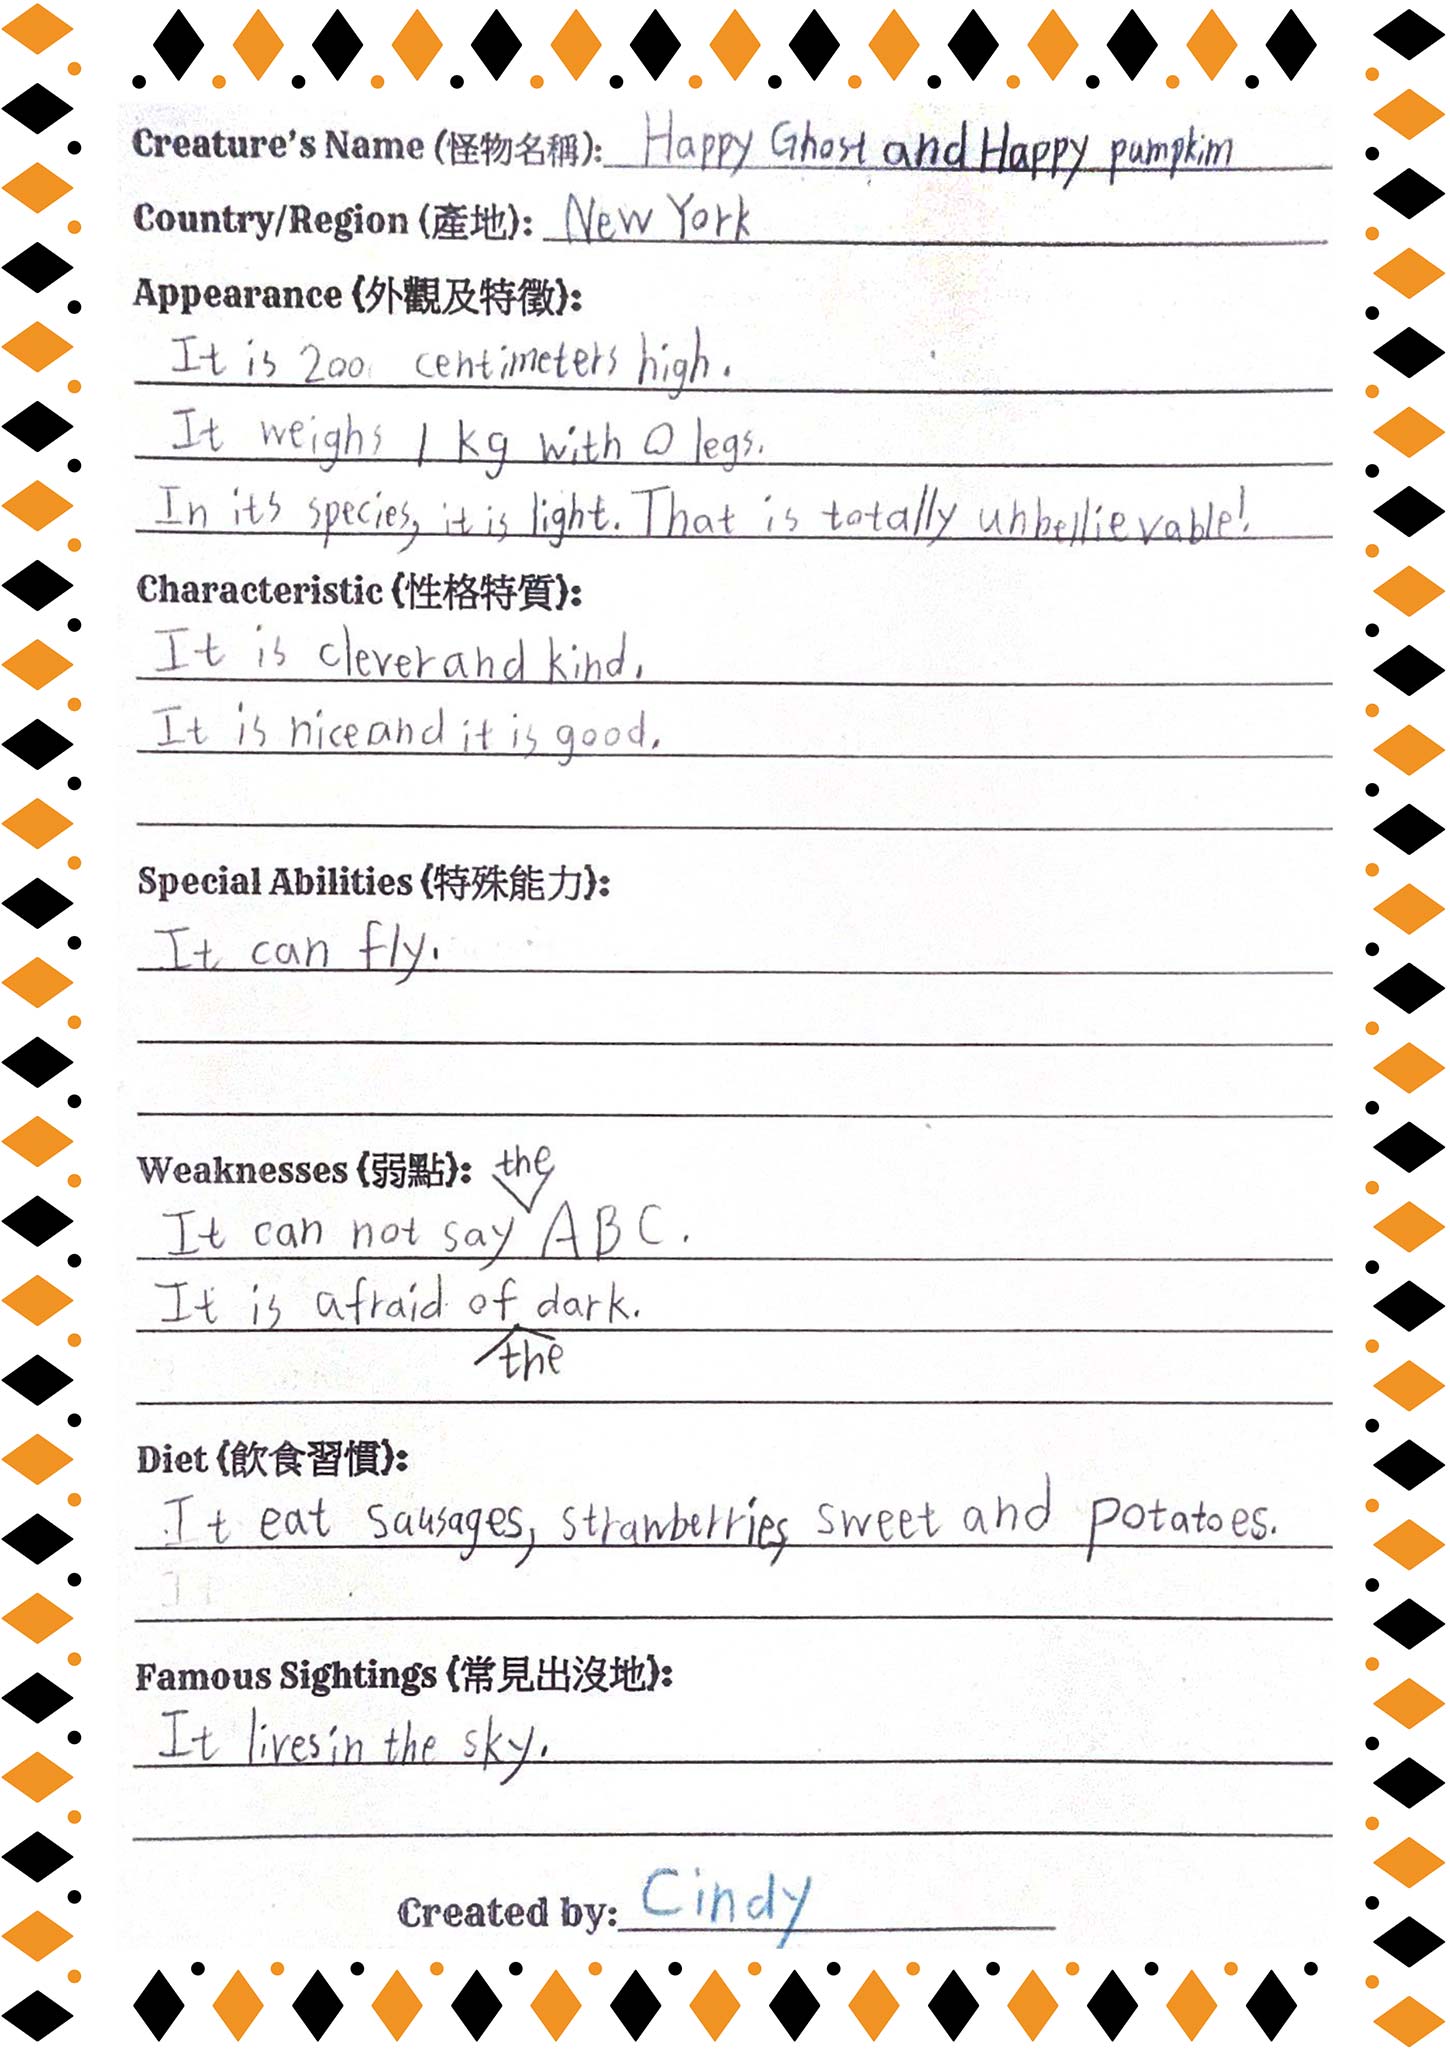 Creature's Name (怪物名稱): Happy Ghost and Happy pumpkim
Country/Region (產地): New York
Appearance (外觀及特徵):
It is 200 centimeters high.
It weighs 1 kg with 0 legs.
In its species, it is light. That is totally unbellievable!
Characteristic (性格特質):
It is clever and kind.
It is nice and it is good.
Special Abilities (特殊能力):
It can fly.
Weaknesses (弱點):
the
It can not say ABC.
It is afraid of dark.
the
Diet (飲食習慣):
It eat sausages, strawberries, sweet and potatoes.
It
Famous Sightings (常見出沒地):
It lives in the sky.
Created by: Cindy